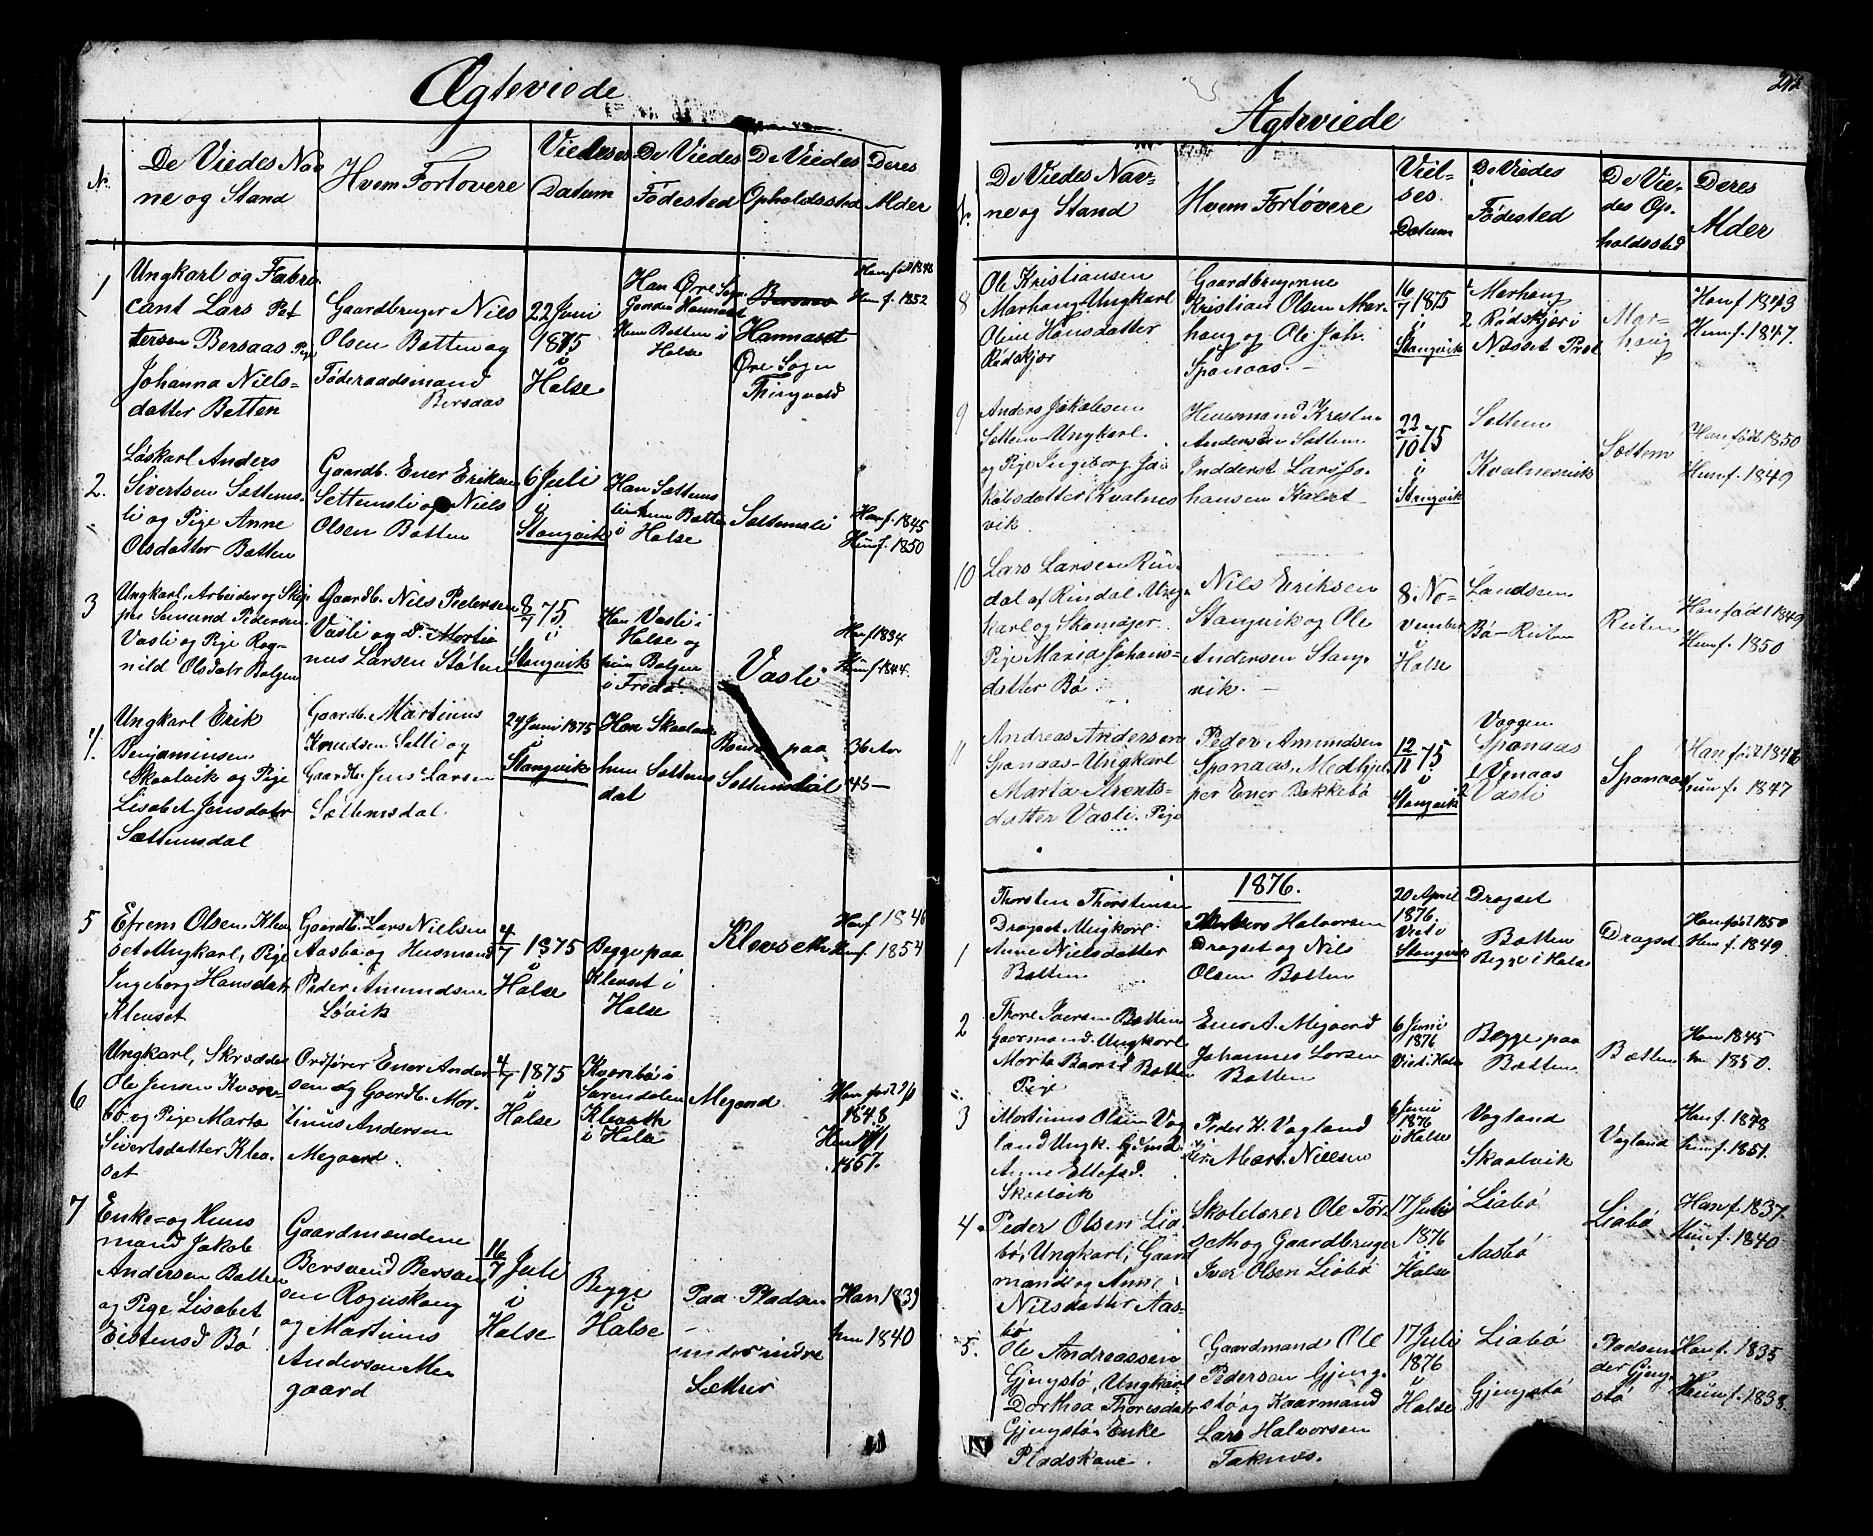 Ægteviede
N.
De Viedes Nav
ne og Stand
Hvem Forlovere
Vielses
Datum
De Viedes
Fødested
De Viedes
Opholdssted
Deres
Alder
1
Ungkarl og Fabri
cant Lars Pet
tersen Bersaas Pige
Johanna Niels=
datter Botten
Gaardbruger Nils
Olsen Botten og
Føderaadsmand
Bersaas
22 Juni
1875
i
Halse
Han Øre Sogn
Hun Botten i
Halse
Bersaas
Hannaset
Øre Sogn
Thingvold
Han født 1848
Hun f. 1852
2.
Løskarl Anders
Sivertsen Settems
li og Pige Anne
Olsdatter Botten
Gaardb. Ener Eriksen
Settemsli og Niels
Olsen Botten
6 Juli
i
Stangvik
Han Settems
li hun Botten
i Halse
Settemsli
Han f. 1845
Hun f. 1850
3
Ungkarl, Arbeider og Skip
per Semund Pedersen
Vasli og Pige Rag-
nild Olsdatr Bolgen
Gaardb. Nils Pedersen
Vasli og do Morti
nus Larsen Støten
8/7 75
i
Stangvik
Han Vasli i
Halse og
hun Bolgen
i Fredø
Vasli
Han f 1834
Hun f. 1844.
4.
Ungkarl Erik
Benjaminsen
Skaalvik og Pige
Lisabet Jonsdatr
Settemsdal
Gaardb. Martinus
Knudsen Setli og
Gaardb. Jens Larsen
Settemsdal
24 Juni 1875
i
Stangvik
Han Skaalvik
hun Settems
dal
paa
Settemsdal
36 Ar
45 —
5
Efrem Olsen Klev
set Ungkarl, Pige
Ingeborg Hansdatr
Klevset
Gaardb. Lars Nielsen
Aasbø og Husmand
Peder Amundsen
Løvik
4/7 1875
i
Halse
Begge paa
Klevset i
Halse
Klevseth
Han f 1846
Hun f. 1854
6
Ungkarl, Skrædder
Ole Jensen Kvern=
bø og Pige Marta
Sivertsdatter Klev
set
Ordfører Ener Ander
sen og Gaardb. Mor-
tinus Andersen
Megaard.
4/7 1875
i
Halse
Kvernbø i
Surendalen
Klevseth
i Halse
Megaard
Han født
1848
7
Enke= og Hus
mand Jakob
Andersen Botten
og Pige Lisabet
Eistensd Bø
Gaardmændene
Bersvend Bersven
sen Rognskoug
og Martinus
Andersen Me
gaard
16/7 Juli
i
Halse
Begge
Halse
Paa Pladsen
under indre
Settem
Han 1839
hun 1840
Ægteviede
N.
De Viedes Nav=
ne og Stand
Hvem Forlovere
Viel=
ses
Datum
De Viedes
Fødested
De Vie=
des Op.
holdssted
Deres
Alder
8
Ole Kristiansen
Marhaug Ungkarl
Oline Hansdatter
Rødskjær
Gaardbrugerne
Kristian Olsen Mar
haug og Ole Joh.
Sponaas. —
16/7 1875
i
Stangvik
1 Marhaug
2 Rødskjær i
Nesset Prst
Mar=
haug
Han f 1843
Hun f. 1847.
9
Anders Jakobsen
Settem Ungkarl.
og Pige Ingeborg Ja
kobsdatter Kvalnes
vik
Husmand Kresten
Andersen Settem
Indderst Lars Jo
hansen Kalert -
22/10 75
i
Stangvik
Settem
Kvalnesvik
Settem
Han født 1850
Hun f. 1849
10
Lars Larsen Rin
dal af Rindal Ung
karl og Skomager
Pige Maria Johans=
datter Bø
Nils Eriksen
Stangvik og Ole
Andersen Stang
vik. —
8. No=
vember
i
Halse
Landsem
Bø - Reiten
Reiten
Han født 1849
Hun f. 1850
11
Andreas Andersen
Sponaas - Ungkarl
Marta Arents=
datter Vasli. Pige
Peder Amundsen
Sponaas, Medhjel
per Ener Bekkebø
12/11 75
i
Stangvik
Vaagen
Sponaas
1 Venaas
2 Vasli
Sponaas
Han født 1846
Hun f. 1847
1876.
1
Thorsten Thorstensen
Drogset Ungkarl.
Anne Nielsdatter
Botten
Halvorsen
Drogset og Nils
Olsen Botten
20 April
1876.
Viet i
Stangvik
Drogset
Botten
Begge i Halse
Drogset
Han født 1850
Hun f. 1849.
2
Thore Iversen Botten
Gaarmand Ungkarl
Marta Bottten
Pige
Ener A. Megaard
Johannes Larsen
Botten
6 Juni
1876
Vied i Halse
Begge paa
Botten
Botten
Han 1845
hu 1850.
3
Mortinus Olsen Vag
land Ungk.
Anne Ellefsd.
Skaalvik
Peder K. Vagland
Mart. Nielsen
6 Juni
1876
i Halse
Vagland
Skaalvik
Vagland
Han f. 1848
hun f. 1851.
4.
Peder Olsen Lia
bø, Ungkarl, Gaard
mand og Anne
Nilsdatter Aas-
bø
Skolelærer Ole Tør
seth og Gaardbruger
Iver Olsen Liabø
17 Juli
1876
i
Halse
Liabø
Aasbø
Liabø
Han f. 1837.
Hun f. 1840
5.
Ole Andreassen
Gjengstø, Ungkarl
Dorthea Thoresdatr
Gjengstø Enke
Pladskone.
Gaardmand Ole
Pedersen Gjeng.
stø og Kaarmand
Lars Halvorsen
Taknes.
17 Juli
1876
i
Halse
Liabø
Gjengstø
Pladsun
der Gjeng
stø
Han f. 1835
Hun f. 1838.